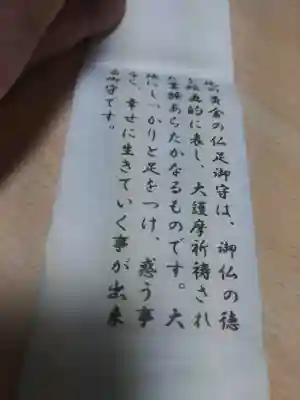 黄金の仏足御守は、御仏の徳
的に表し、大護摩祈祷され
あらたかなるものです。大
にしっかりと足をつけ、惑う事
、幸せに生きていく事が出来
御守です。